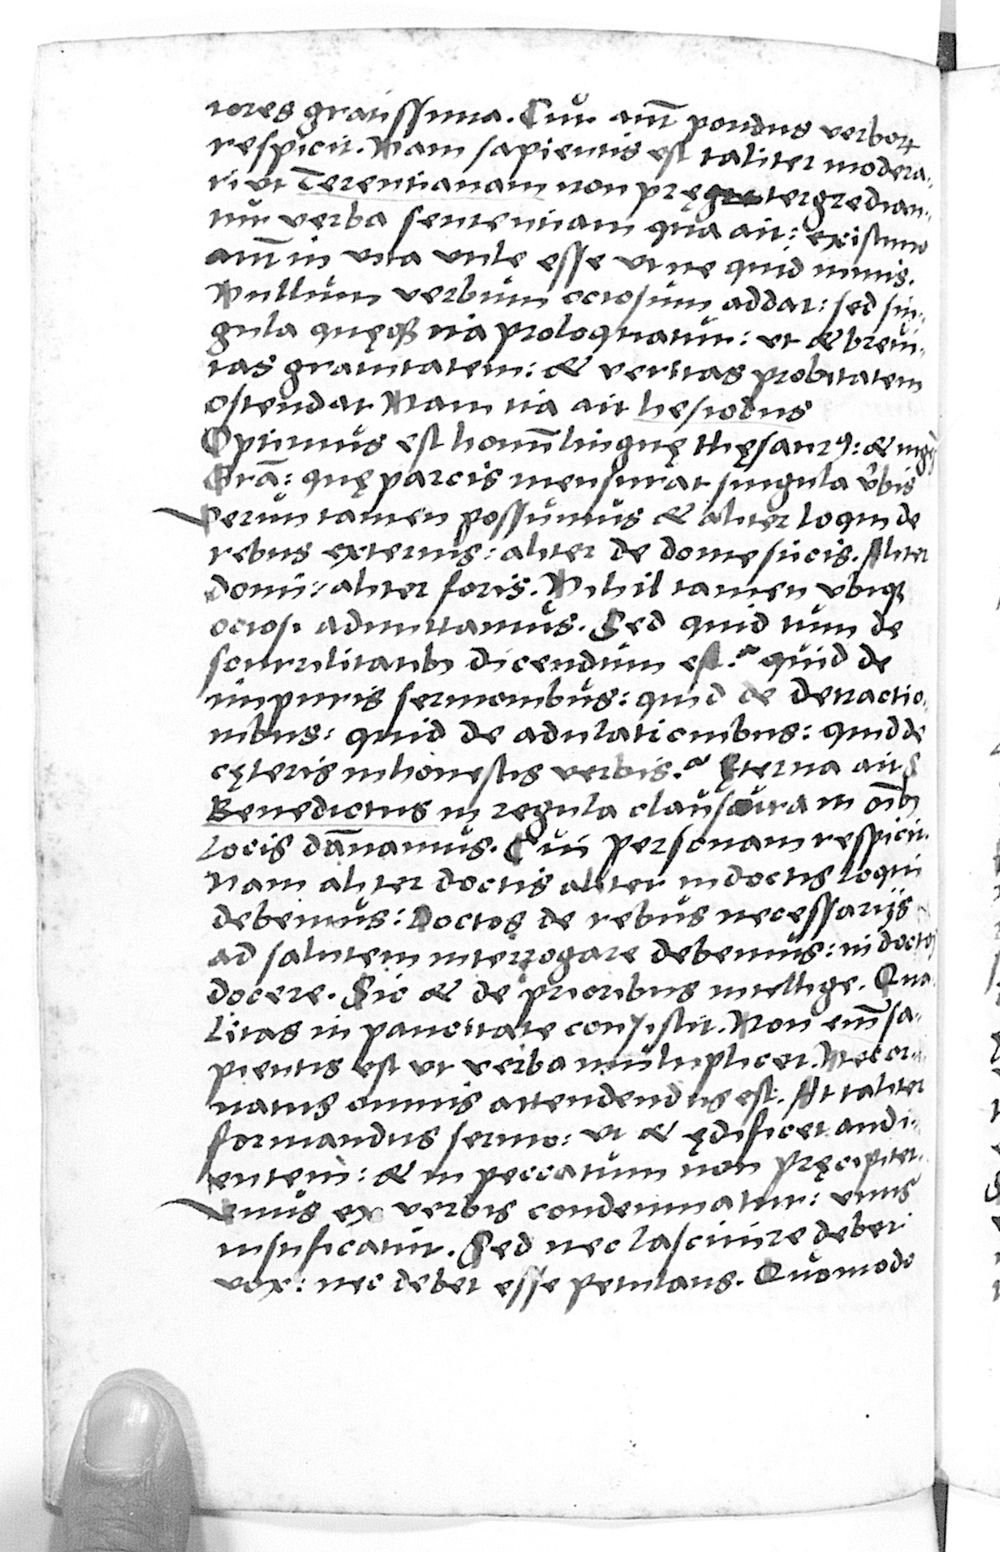 tores gratissima. Cur aut̄ pondus verboꝝ
respicit. Nam sapientis est taliter modera-
ri ut Terentianam non pręgre tergredian-
tur verba sententiam qua ait: existimo
aut̄ in vita utile esse ut ne quid nimis.
Nullum verbum ociosum addat: sed sin-
gula quęqꝫ ita proloquatur: ut & brevi-
tas gravitatem: & veritas probitatem
ostendat Nam ita ait hesiodus
Optimus est homīn linguę thęsaurꝰ: & ingēs
Grā: quę parcis mensurat singula v̄bis
Verum tamen possumus & aliter loqui de
rebus externis: aliter de domesticis. Aliter
domi: aliter foris. Nihil tamen ubiqꝫ
ociosi admittamus. Sed quid tum de
scurrilitatibꝫ dicendum est? quid de
impuris sermonibus: quid de detractio-
nibus: quid de adulationibus: quid de
cęteris inhonestis verbis? Ęterna ait S
Benedictus in regula clausura in oīбꝫ
locis dānamus. Cui personam respicit.
Nam aliter doctis aliter indoctis loqui
debemus: Doctos de rebus necessarijs
ad salutem interrogare debemus: indoctos
docere. Sic & de prioribus intellige. Qua-
litas in pancitate consistit. Non enī sa-
pientis est ut verba multiplicet. Nec or-
natus omnis attendendus est. At taliter
formandus sermo: ut & ędificet audi-
entem: & in peccatum non pręcipitet.
Unus ex verbis condemnatur: unus
iustificatur. Sed nec lascivire debet
vox: nec debet esse petulans. Quomodo